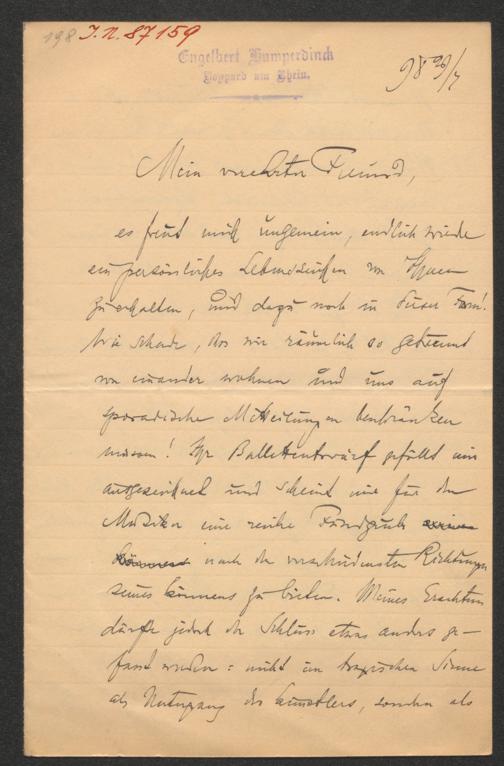 198 I.N. 87159
Engelbert Humperdinck
Boppard am Rhein.
98 29/7
Mein verehrter Freund,
es freut mich ungemein, endlich wieder
ein persönliches Lebenszeichen von Ihnen
zu erhalten, und dazu noch in dieser Form!
Wie schade, das wir räumlich so getrennt
von einander wohnen und uns auf
sporadische Mitteilungen beschränken
müssen! Ihr Ballettentwurf gefällt mir
ausgezeichnet und scheint mir für den
Musiker eine reiche Fundgrube seines
Könnens nach den verschiedensten Richtungen
seines Könnens zu bieten. Meines Erachtens
dürfte jedoch der Schluss etwas anders ge-
fasst werden: nicht im tragischen Sinne
als Untergang des Künstlers, sondern als